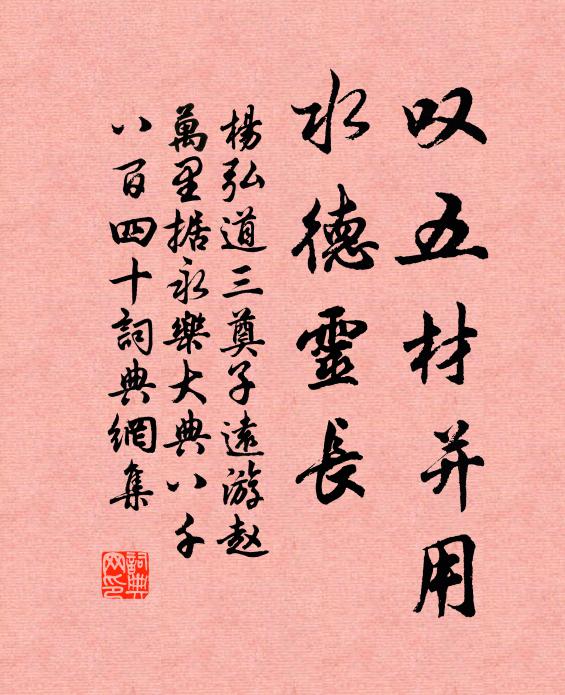 叹五材并用
水德靈長
楊弘道三奠子遠游赵
萬里据永樂大典八千
八百四十詞典網集
詞典網印